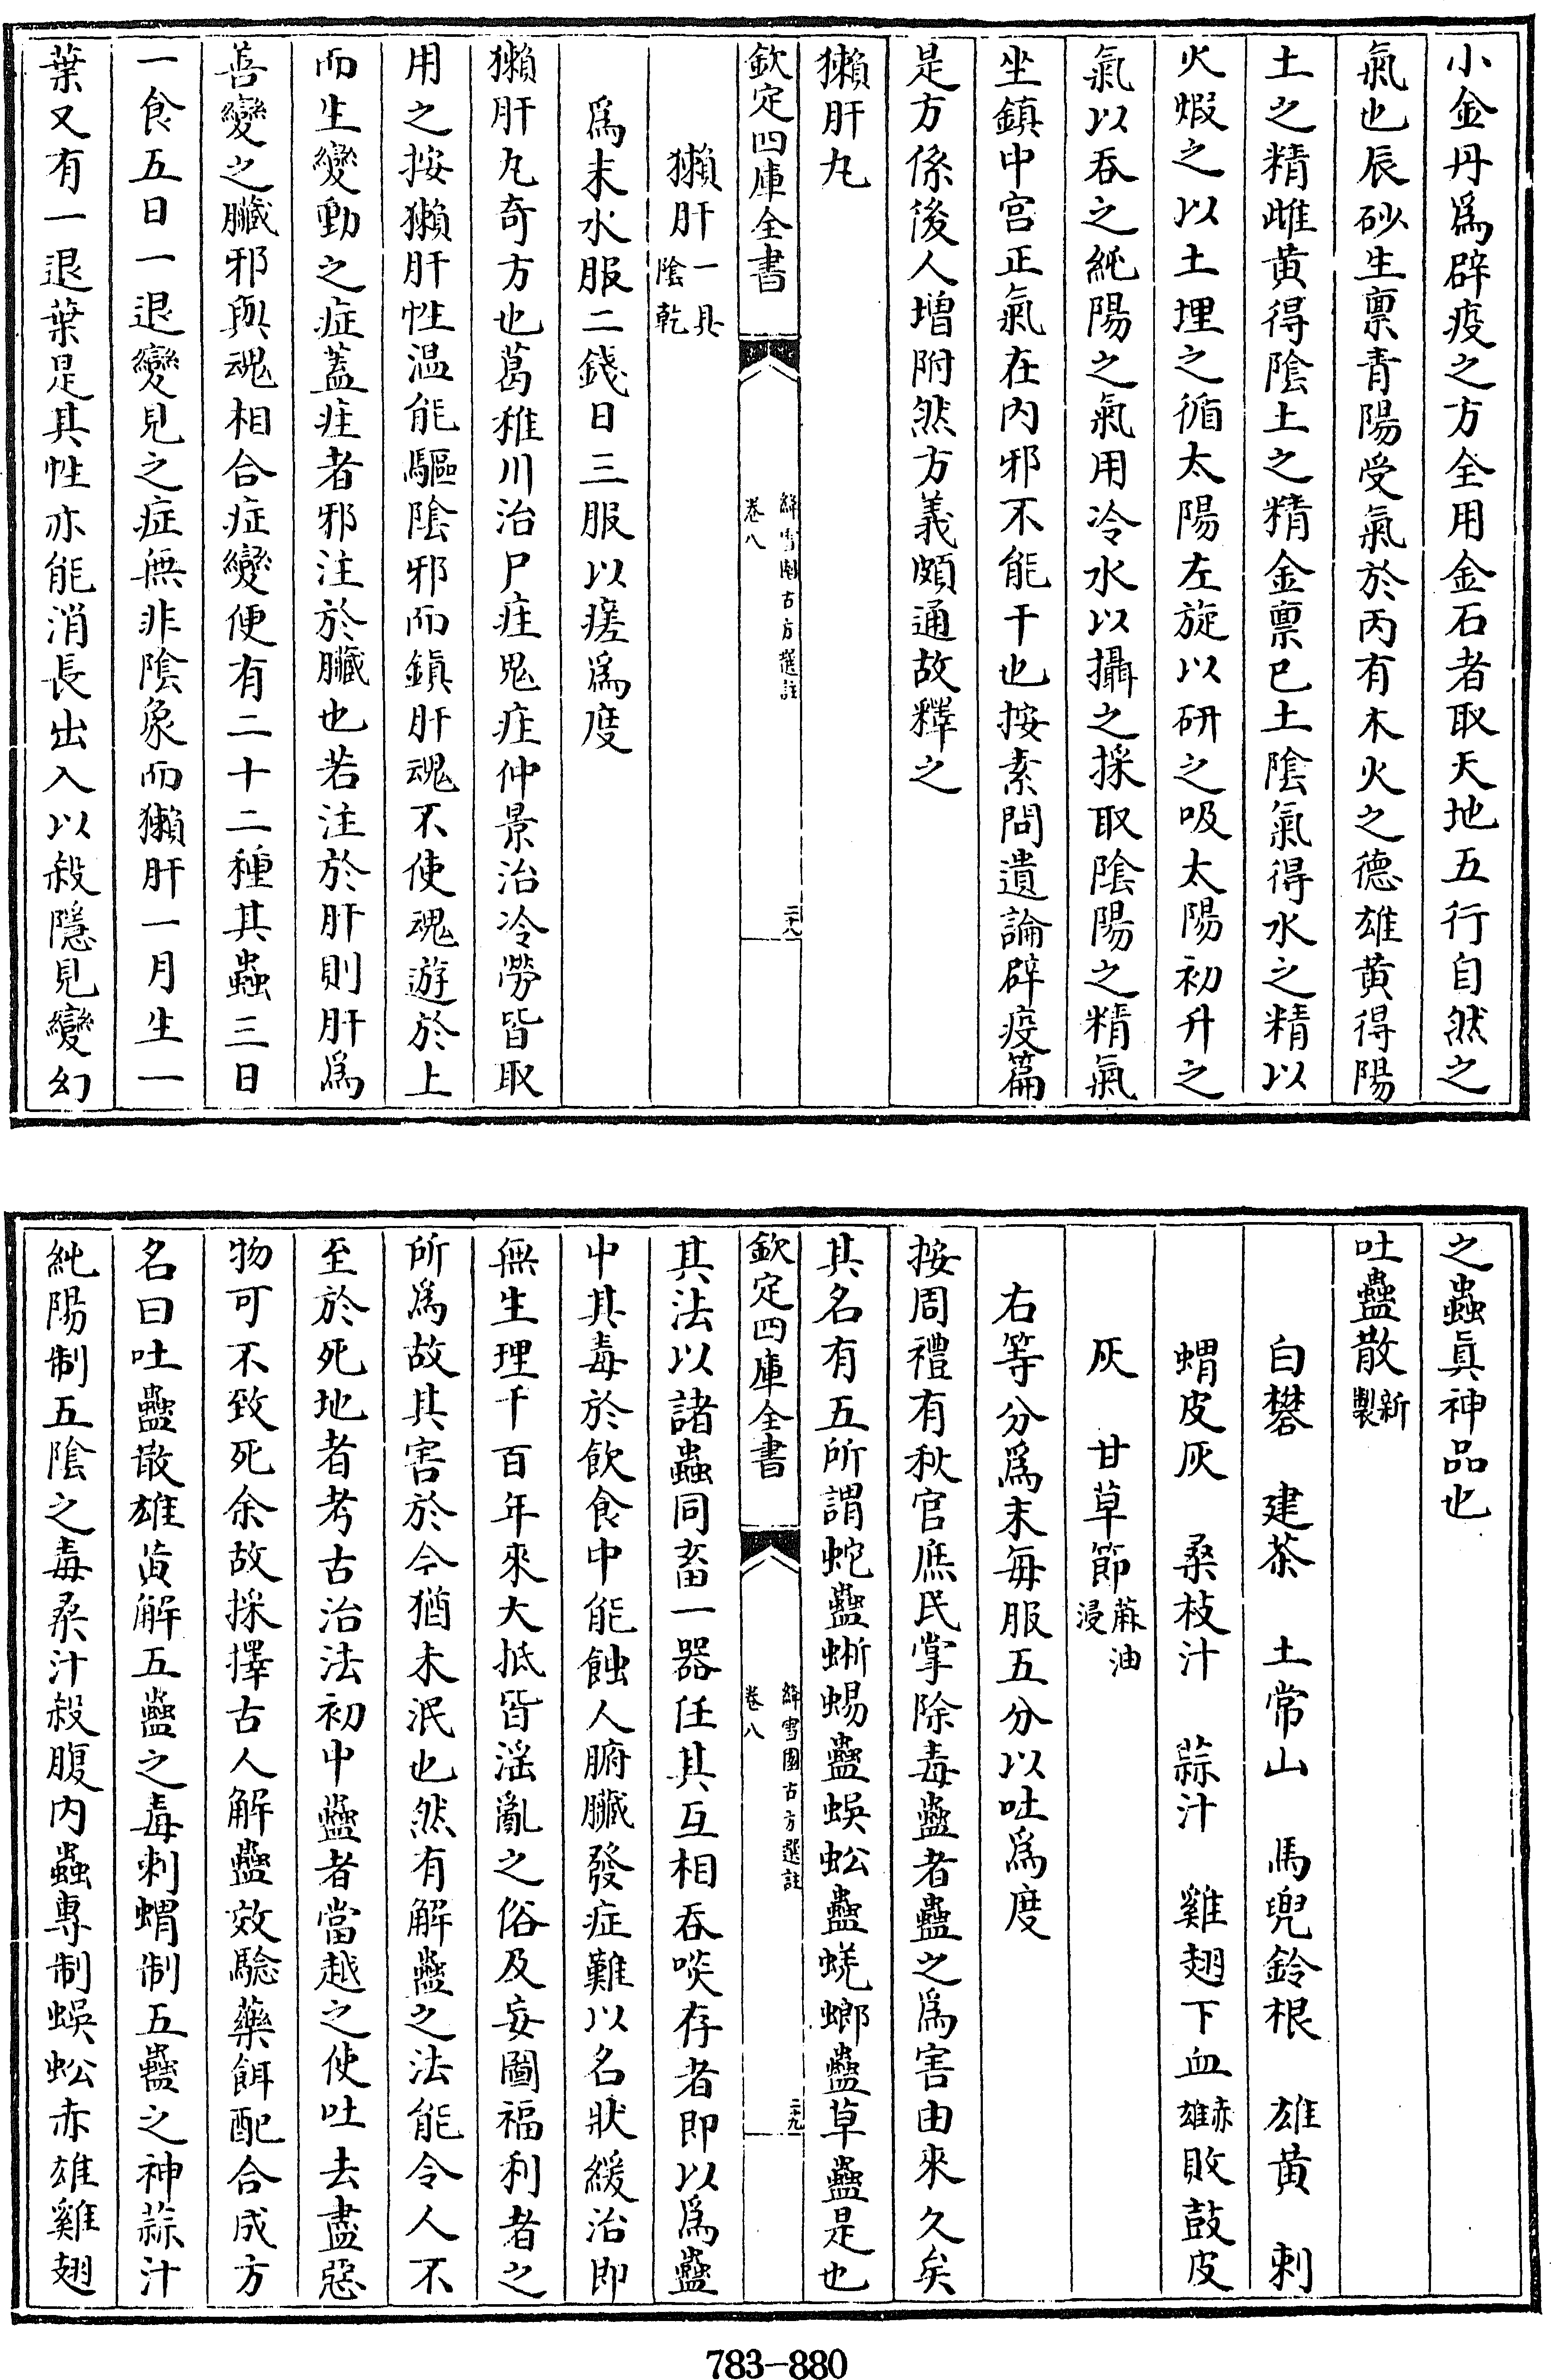 小金丹爲辟疫之方全用金石者取天地五行自然之
氣也辰砂生禀青陽受氣於丙有木火之德雄黄得陽
土之精雌黄得陰土之精金禀巳土陰氣得水之精以
火煅之以土埋之循太陽左旋以研之吸太陽初升之
氣以吞之純陽之氣用冷水以攝之採取陰陽之精氣
坐鎮中宮正氣在内邪不能干也按素問遺論辟疫篇
是方係後人增附然方義頗通故釋之
獺肝丸
欽定四庫全書
絳雪園古方選註
卷八
二十八
獺肝一具陰乾
爲末水服二錢日三服以瘥爲度
獺肝丸奇方也葛稚川治尸疰鬼疰仲景治冷勞皆取
用之按獺肝性温能驅陰邪而鎮肝魂不使魂遊於上
而生變動之症蓋疰者邪注於臟也若注於肝則肝爲
善變之臟邪與魂相合症變便有二十二種其蟲三日
一食五日一退變見之症無非陰象而獺肝一月生一
葉又有一退葉是其性亦能消長出入以殺隱見變幻
之蟲真神品也
吐蠱散新製
白礬　建茶　土常山　馬兜鈴根　雄黄　刺
蝟皮灰　桑枝汁　蒜汁　雞翅下血赤雄敗鼓皮
灰　甘草節蔴油浸
右等分爲末每服五分以吐爲度
按周禮有秋官庶民掌除毒蠱者蠱之爲害由來久矣
其名有五所謂蛇蠱蜥蜴蠱蜈蚣蠱蜣螂蠱草蠱是也
欽定四庫全書
絳雪園古方選註
卷八
二十九
其法以諸蟲同畜一器任其互相吞啖存者即以爲蠱
中其毒於飲食中能蝕人腑臟發症難以名狀緩治即
無生理千百年來大抵皆滛亂之俗及妄圖福利者之
所爲故其害於今猶未泯也然有解蠱之法能令人不
至於死地者考古治法初中蠱者當越之使吐去盡惡
物可不致死余故採擇古人解蠱效驗藥餌配合成方
名曰吐蠱散雄黄解五蠱之毒刺蝟制五蠱之神蒜汁
純陽制五陰之毒桑汁殺腹内蟲專制蜈蚣赤雄雞翅
783-880